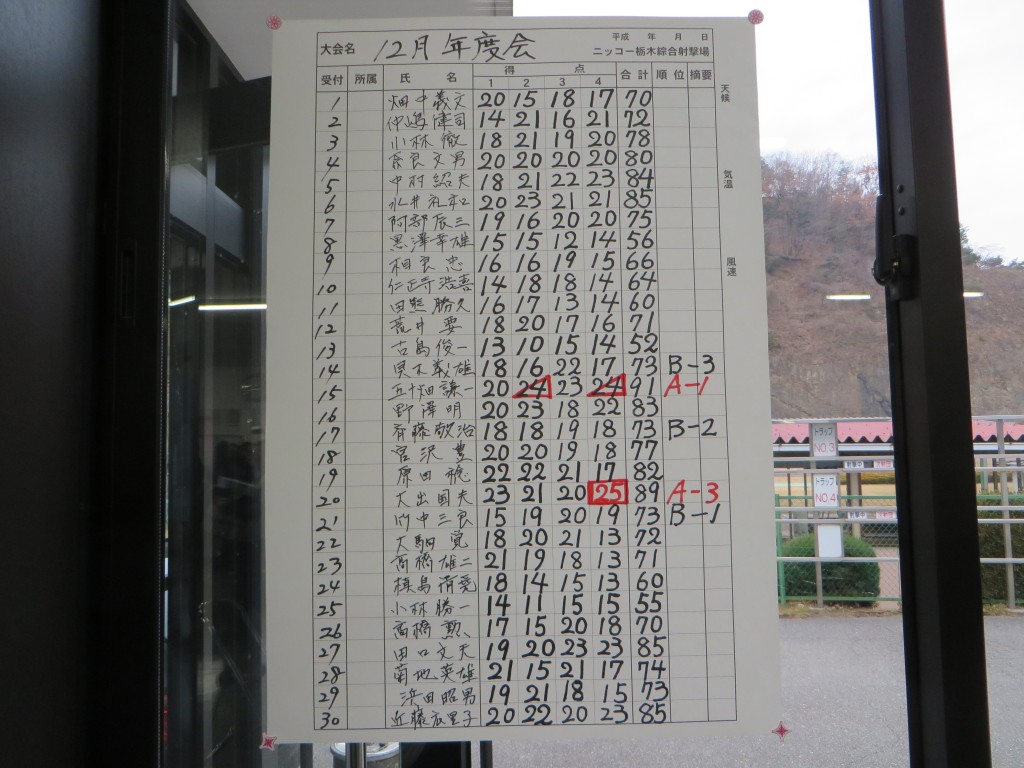 平成 年 月 日
大会名 12月 年度会 ニッコー栃木綜合射撃場
受付 所属 氏 名 得 点 合計 順位 摘要
1 2 3 4
1 畑中義文 20 15 18 17 70
2 仲嶋 司 14 21 16 21 72
3 小林 徹 18 21 19 20 78
4 奈良文男 20 20 20 20 80
5 中村 夫 18 21 22 23 84
6 永井礼和 20 23 21 21 85
7 阿部辰三 19 16 20 20 75
8 黒澤幸雄 15 15 12 14 56
9 相良 忠 16 16 19 15 66
10 仁正寺浩喜 14 18 18 14 64
11 田熊勝久 16 17 13 14 60
12 荒井 要 18 20 17 16 71
13 古島俊一 13 10 15 14 52
14 義雄 18 16 22 17 73 B-3
15 五十畑謙一 20 24 23 24 91 A-1
16 野澤 明 20 23 18 22 83
17 斉藤敬治 18 18 19 18 73 B-2
18 宮沢 豊 20 20 19 18 77
19 原田 22 22 21 17 82
20 大出国夫 23 21 20 25 89 A-3
21 竹中三良 15 19 20 19 73 B-1
22 大駒 覚 18 20 21 13 72
23 高橋雄二 21 19 18 13 71
24 島 18 14 15 13 60
25 小林勝一 14 11 15 15 55
26 高橋 勲 17 15 20 18 70
27 田口文夫 19 20 23 23 85
28 菊地英雄 21 15 21 17 74
29 浜田昭男 19 21 18 15 73
30 近藤衣里子 20 22 20 23 85
天候
気温
風速
トラップ
NO.3
トラップ
NO.4